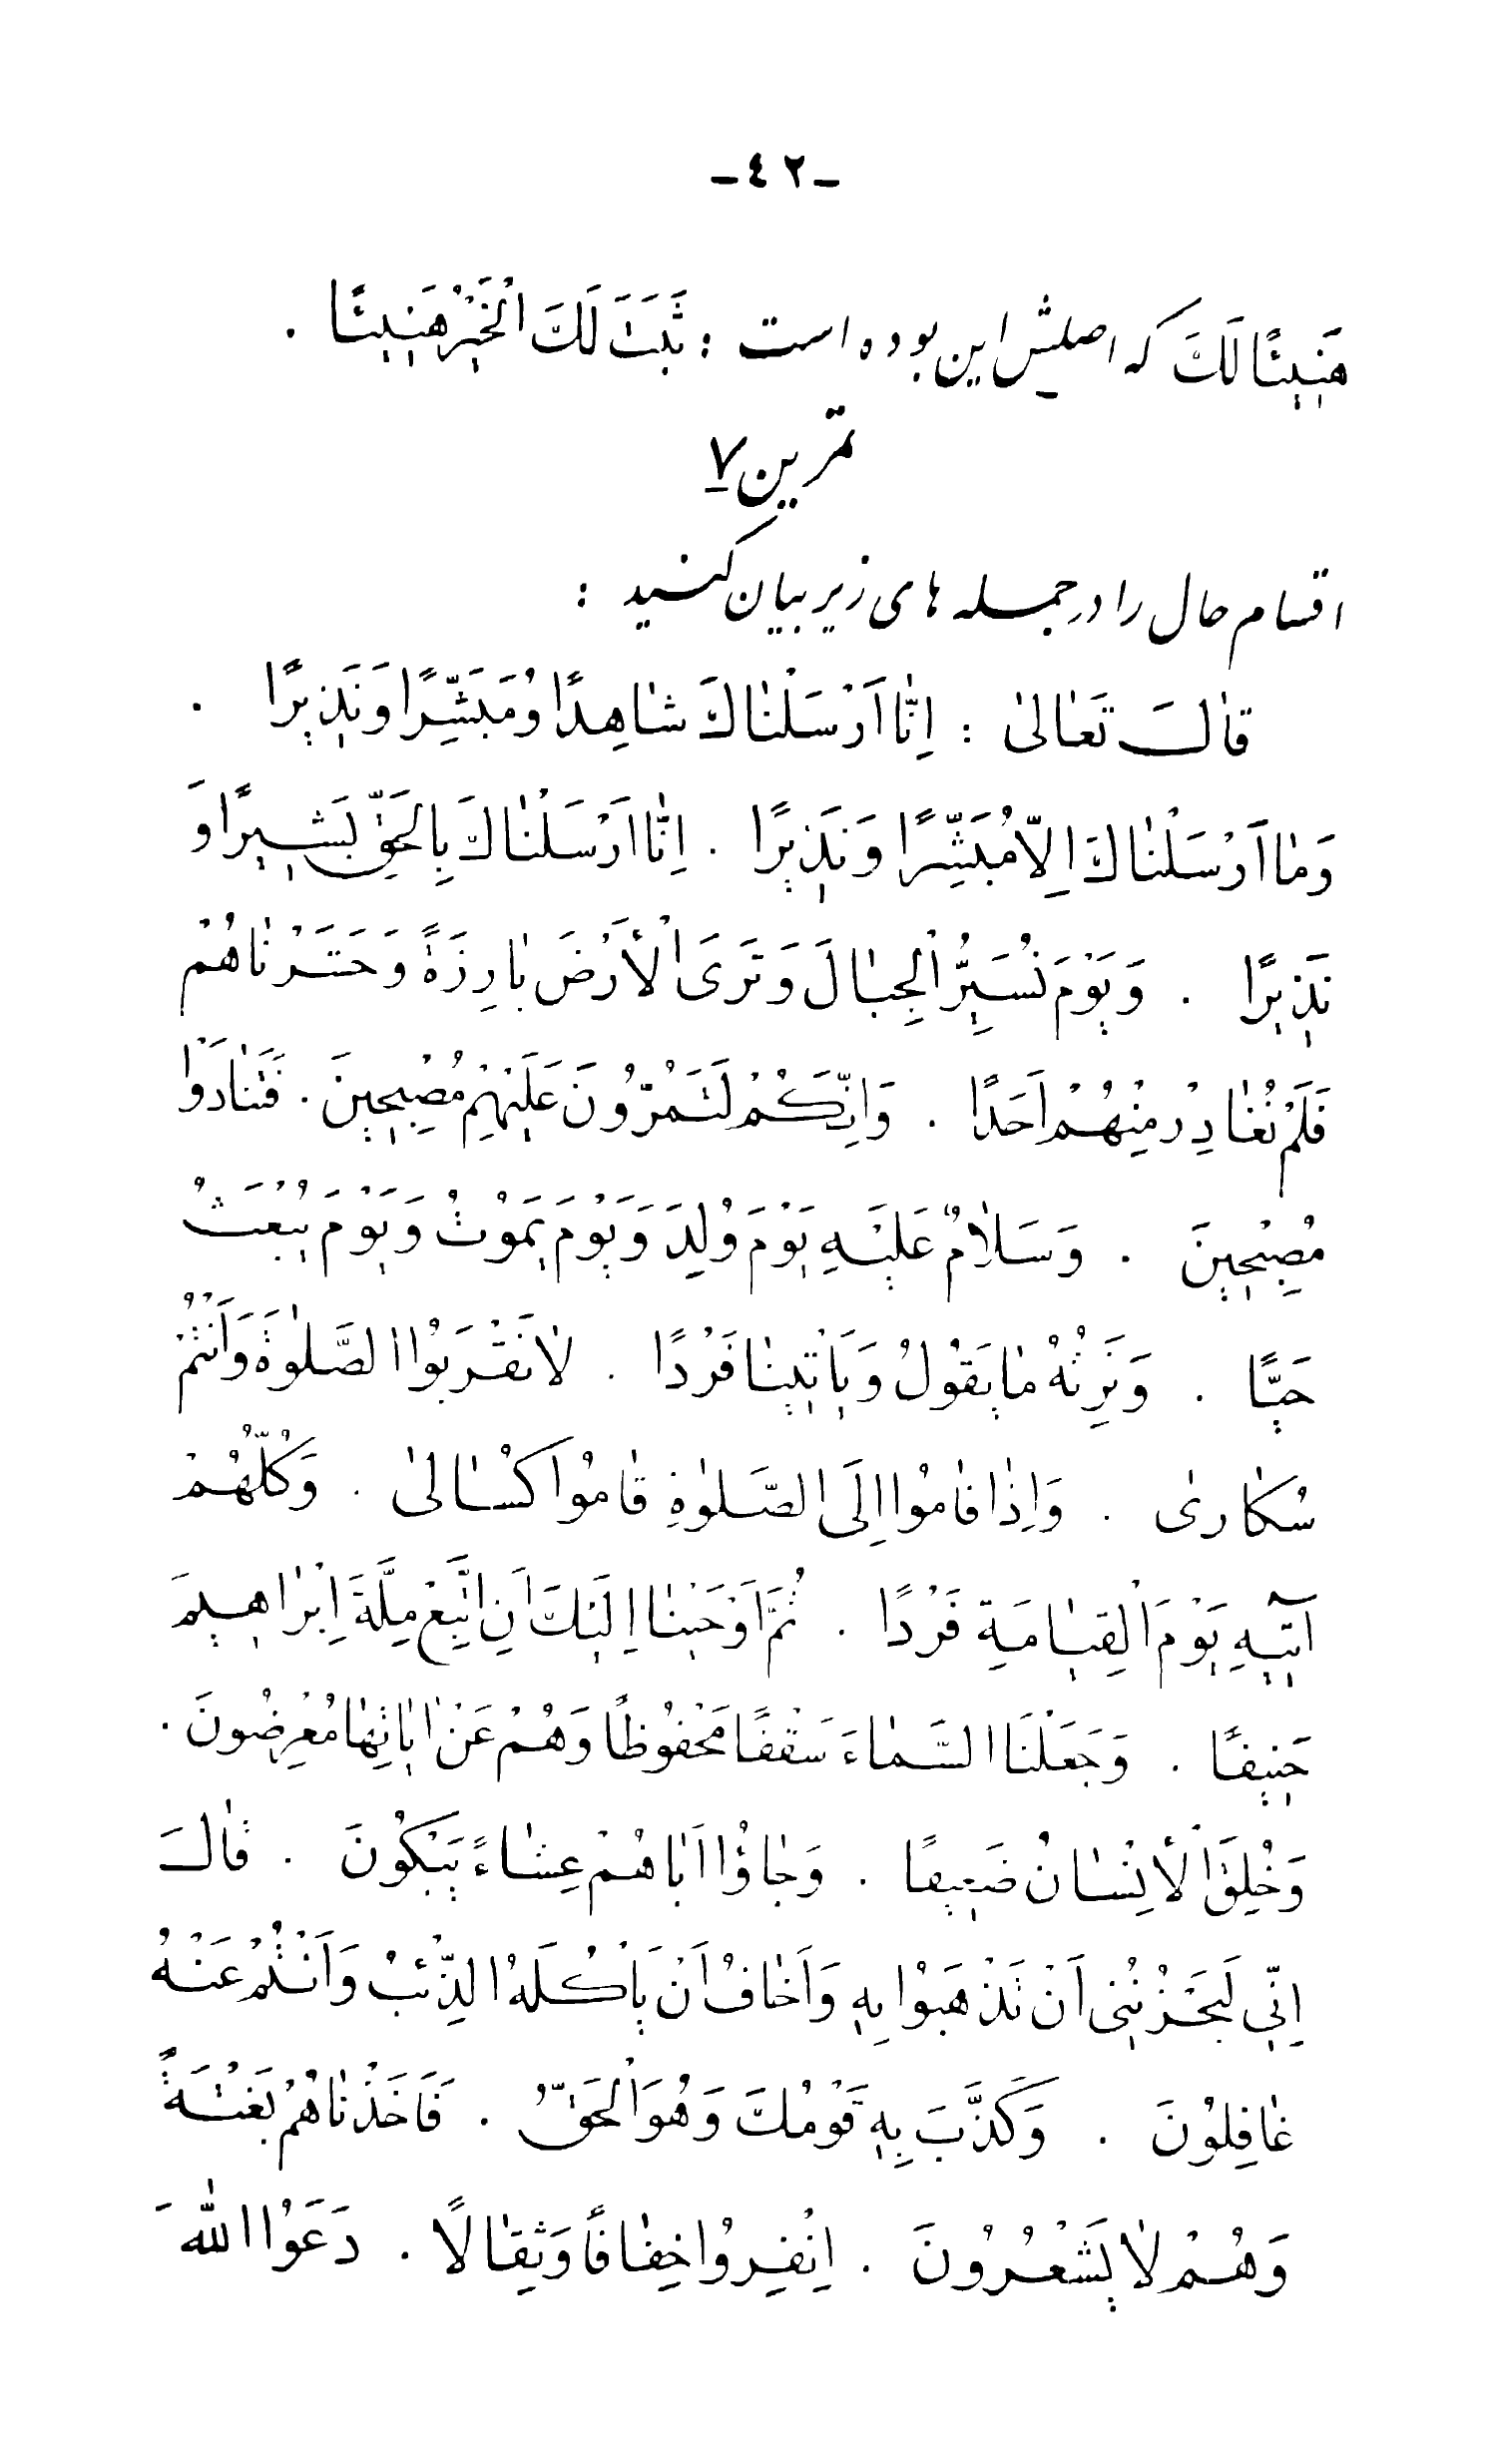 -٤٢-
هَنِیئًا لَكَ که اصلیش این بوده است : ثَبَتَ لَكَ الْخَیْرُ هَنِیئًا .
تمرین ٧
اقسام حال را در جمله های زیر بیان کنید :
قٰالَ تَعٰالىٰ : اِنّٰا اَرْسَلْنٰاكَ شٰاهِدًا وُمَبَشِّرًا وَنَذِیرًا .
وَمٰا اَرْسَلْنٰاكَ اِلّا مُبَشِّرًا وَنَذِیرًا . اِنّٰا اَرْسَلْنٰاكَ بِالْحَقِّ بَشِیرًا وَ
نَذِیرًا . وَیَوْمَ نُسَیِّرُ الْجِبٰالَ وَتَرَى الْأَرْضَ بٰارِزَةً وَحَشَرْنٰاهُمْ
فَلَمْ نُغٰادِرْ مِنْهُمْ اَحَدًا . وَاِنَّكُمْ لَتَمُرُّونَ عَلَیْهِمْ مُصْبِحِینَ . فَتَنٰادَوْا
مُصْبِحِینَ . وَسَلٰامٌ عَلَیْهِ یَوْمَ وُلِدَ وَیَوْمَ یَمَوْتُ وَیَوْمَ یُبْعَثُ
حَیًّا . وَنَرِثُهُ مٰا یَقُولُ وَیَأْتِینٰا فَرْدًا . لٰا تَقْرَبُوا الصَّلوٰةَ وَاَنْتُمْ
سُكٰارىٰ . وَاِذٰا قٰامُوا اِلَى الصَّلوٰةِ قٰامُوا كُسٰالىٰ . وَكُلُّهُمْ
آتِیهِ یَوْمَ الْقِیٰامَةِ فَرْدًا . ثُمَّ اَوْحَیْنٰا اِلَیْكَ اَنِ اتَّبِعْ مِلَّةَ اِبْرٰاهِیمَ
حَنِیفًا . وَجَعَلْنَا السَّمٰاءَ سَقْفًا مَحْفُوظًا وَهُمْ عَنْ اٰیٰاتِهٰا مُعْرِضُونَ .
وَخُلِقَ الْأِنْسٰانُ ضَعِیفًا . وَجٰاؤُا اَبٰاهُمْ عِشٰاءً یَبْكُونَ . قٰالَ
اِنّى لَیَحْزُنُنِى اَنْ تَذْهَبُوْا بِهِ وَاَخٰافُ اَنْ یَأْكُلَهُ الذِّئْبُ وَاَنْتُمْ عَنْهُ
غٰافِلُوْنَ . وَكَذَّبَ بِهِ قَوْمُكَ وَهُوَ الْحَقُّ . فَاَخَذْنٰاهُمْ بَغْتَةً
وَهُمْ لٰا یَشْعُرُونَ . اِنْفِرُوْا خِفٰافًا وَثِقٰالًا . دَعَوُا اللّٰهَ